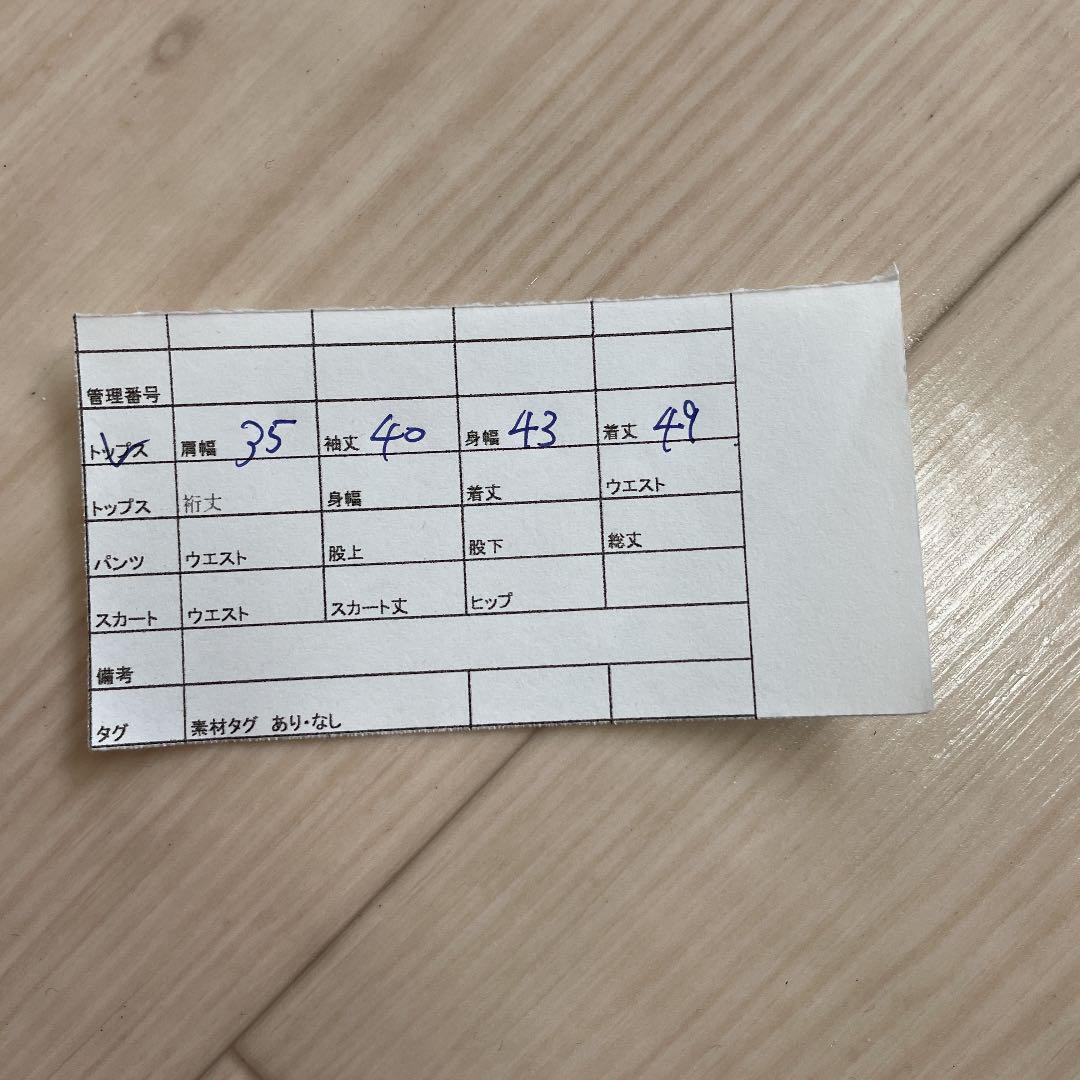 管理番号
トップス 肩幅 35 袖丈 40 身幅 43 着丈 49
トップス 裄丈 身幅 着丈 ウエスト
パンツ ウエスト 股上 股下 総丈
スカート ウエスト スカート丈 ヒップ
備考
タグ 素材タグ あり・なし